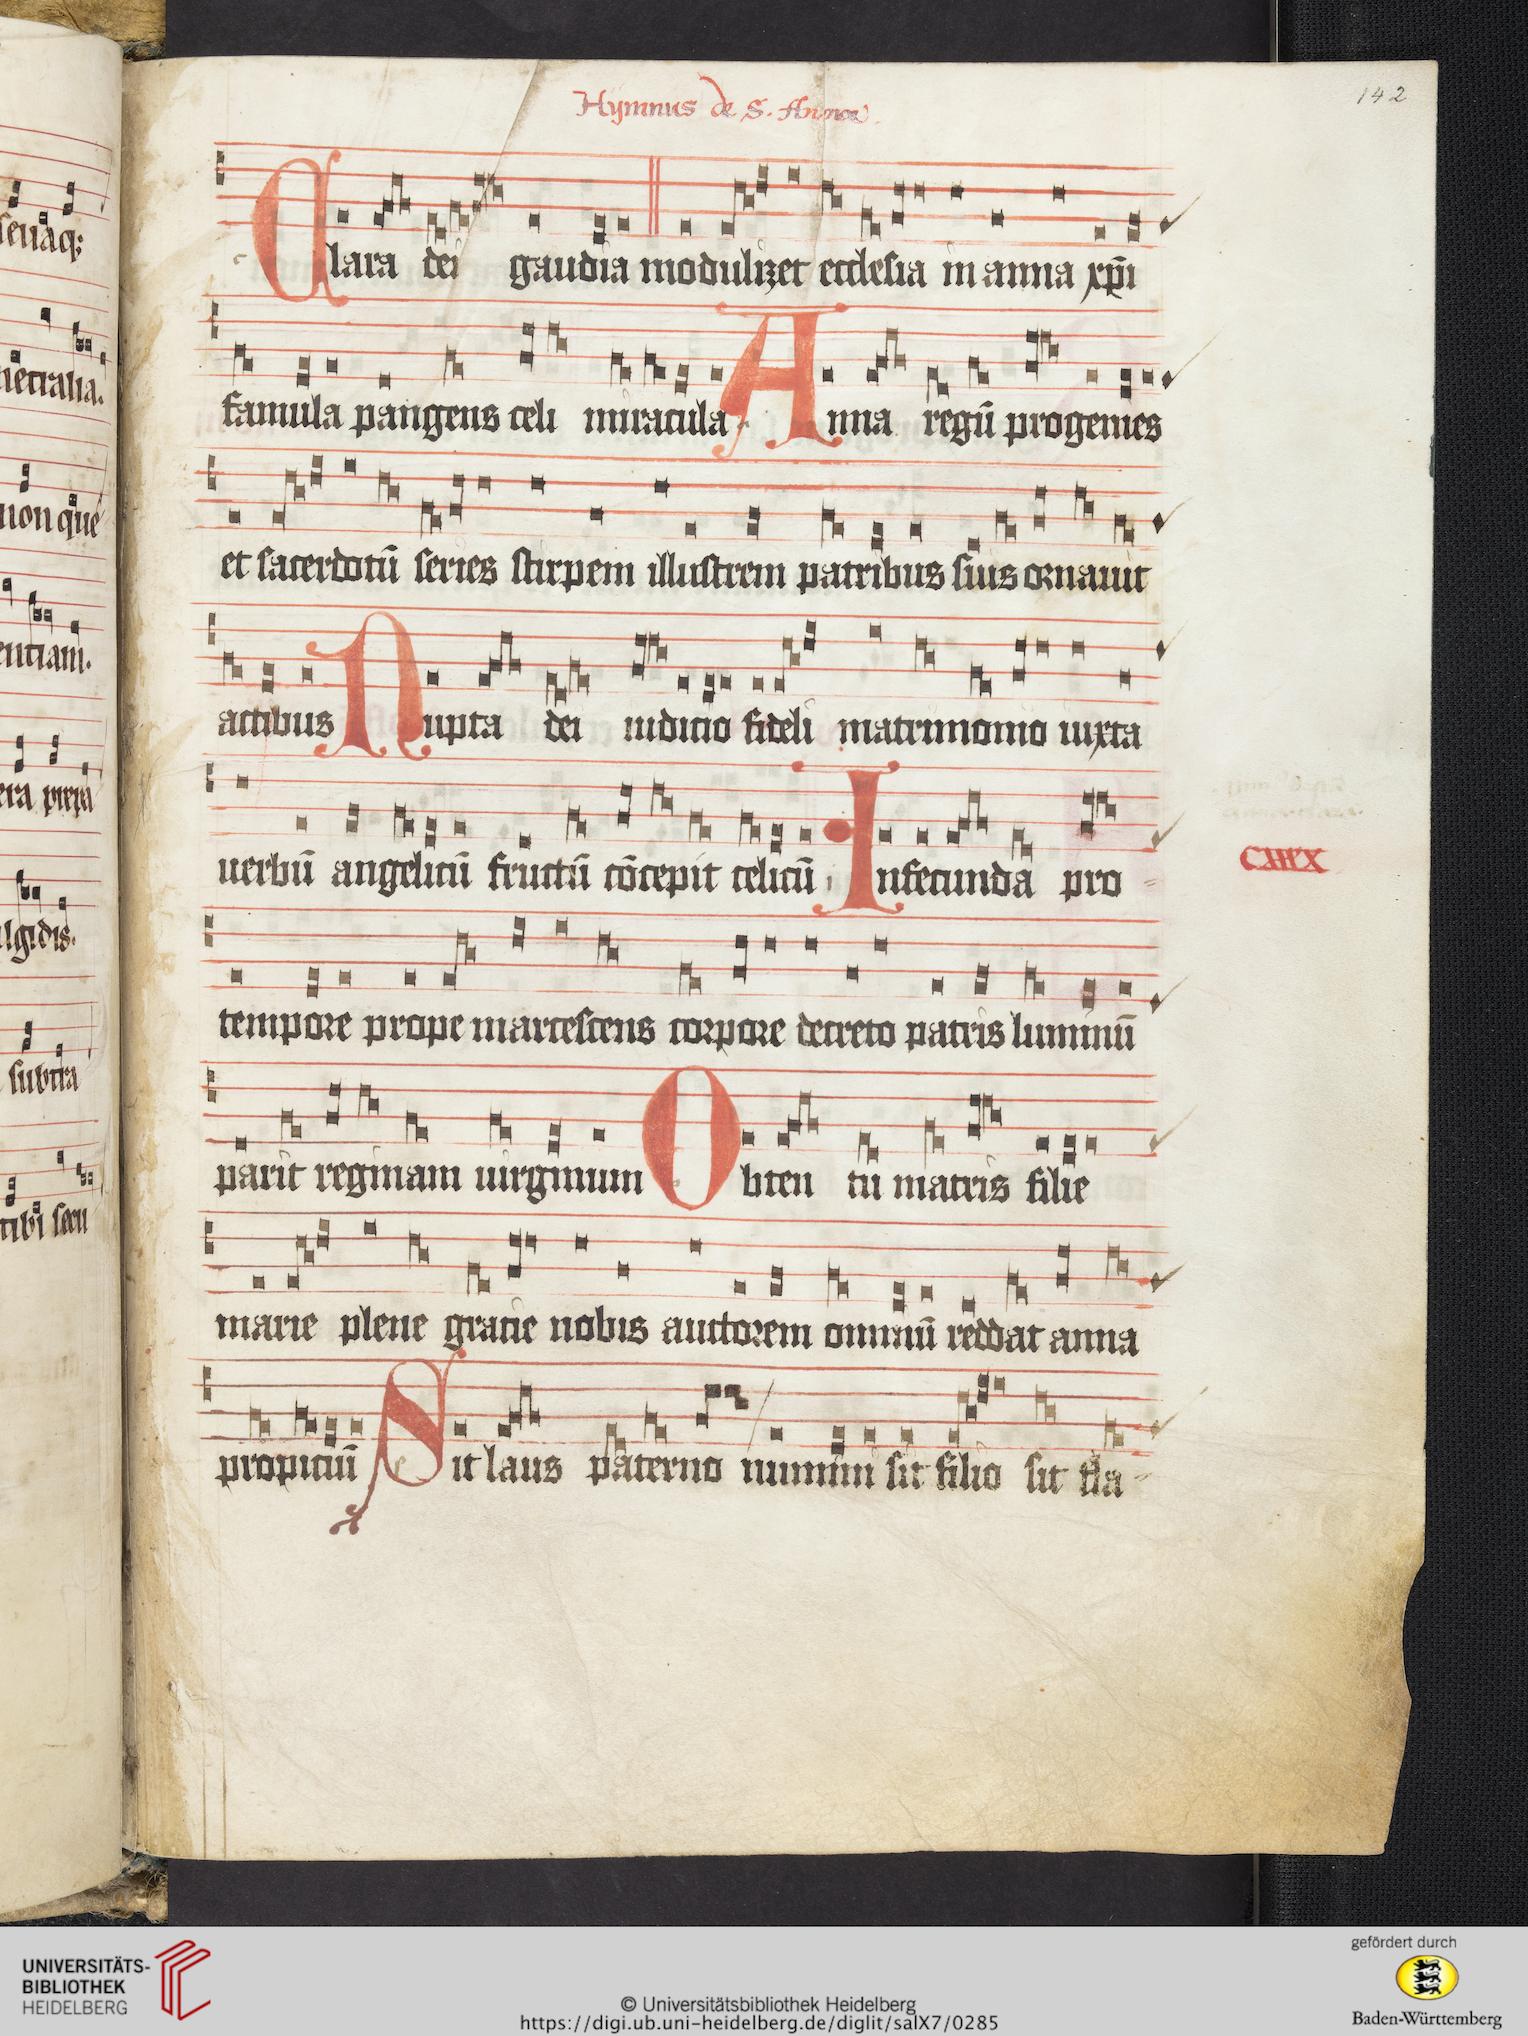 senāq;
tiêtralia.
non que
entiam.
era prepa
ulgidis.
subtra
tibi secu
142
Hymnus de S. Anna.
Clara dei gaudia modulizet ecclesia in anna xp̄i
famula pangens celi miracula Anna regū progenies
et sacerdotū series stirpem illustrem patribus suis ornauit
actibus Nupta dei iudicio fideli matrimonio iuxta
uerbū angelicū fructū cōcepit celicū Infecunda pro-
tempore prope marcescens corpore decreto patris luminū
parit reginam uirginum Obten tu matris filie
marie plene gracie nobis auctorem omniū reddat anna
propiciū Sit laus paterno numini sit filio sit fla-
UNIVERSITÄTS-
BIBLIOTHEK
HEIDELBERG
© Universitätsbibliothek Heidelberg
https://digi.ub.uni-heidelberg.de/diglit/salX7/0285
gefördert durch
Baden-Württemberg